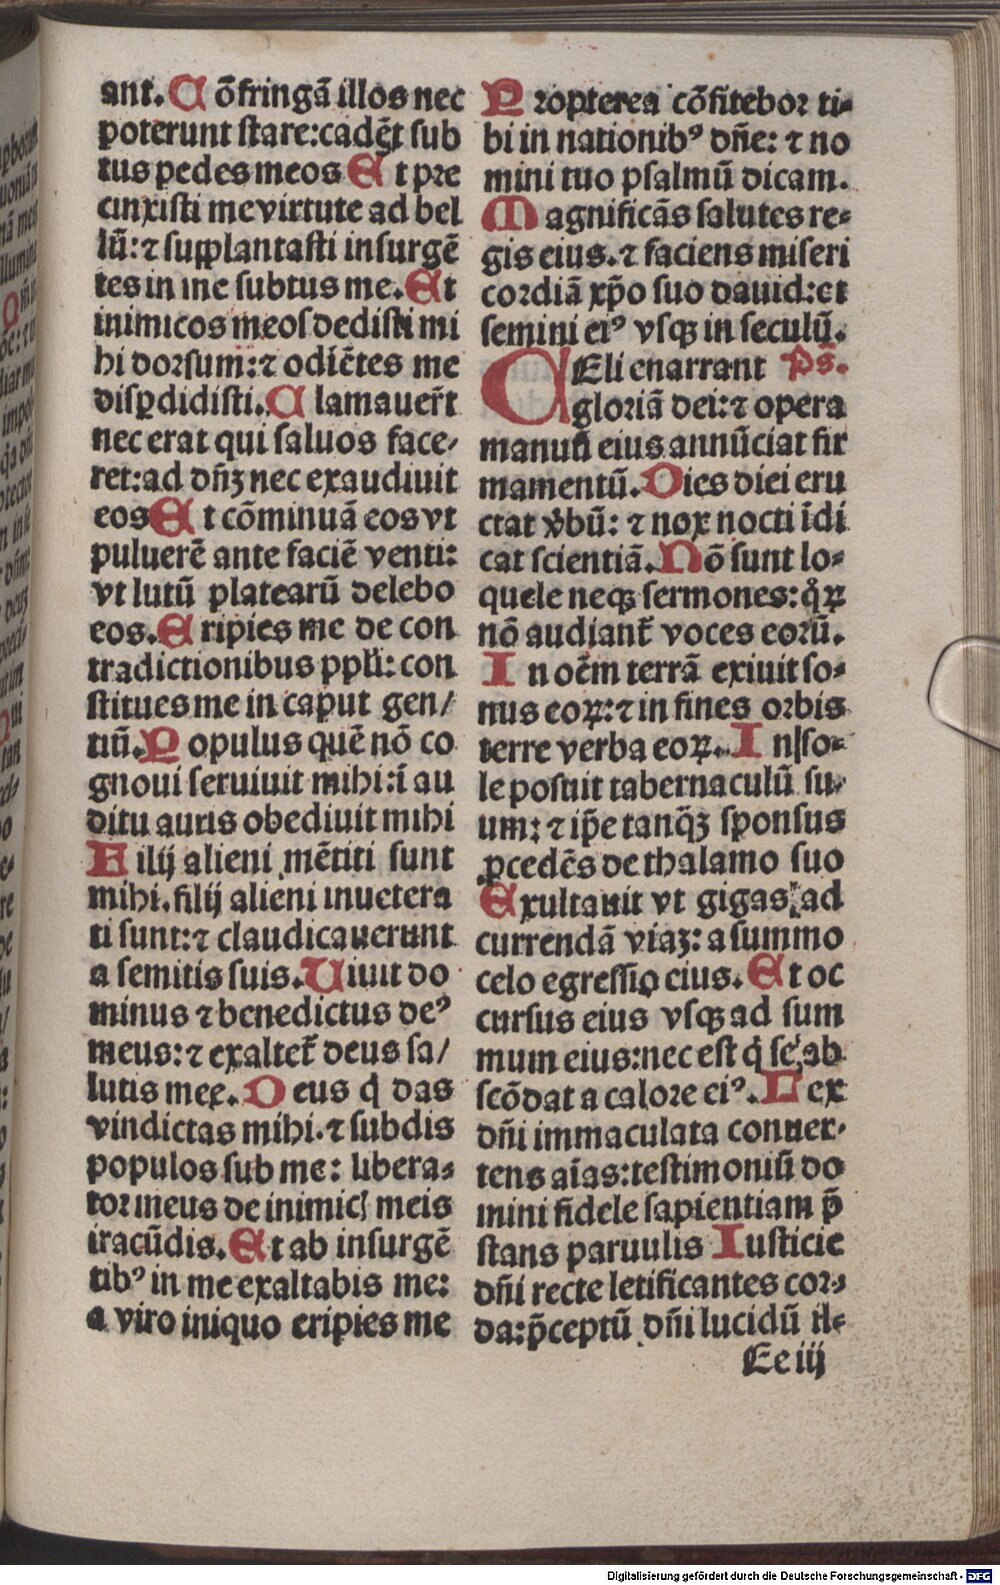 ant. Cōfringā illos nec
poterunt stare:cadēt sub
tus pedes meos Et pre
cinxisti me virtute ad bel
lū: ⁊ supplantasti insurgē
tes in me subtus me. Et
inimicos meos dedisti mi
hi dorsum: ⁊ odiētes me
disꝑdidisti. Clamauer̄t
nec erat qui saluos face/
ret: ad dn̄ꝫ nec exaudiuit
eos Et cōminuā eos vt
puluerē ante faciē venti:
vt lutū platearū delebo
eos. Eripies me de con
tradictionibus ppl'i: con
stitues me in caput gen/
tiū. Populus quē nō co
gnoui seruiuit mihi: ī au
ditu auris obediuit mihi
Filij alieni mētiti sunt
mihi. filij alieni inuetera
ti sunt: ⁊ claudicauerunt
a semitis suis. Uiuit do
minus ⁊ benedictus deꝰ
meus: ⁊ exaltet̄ deus sa/
lutis mee. Deus q̇ das
vindictas mihi. ⁊ subdis
populos sub me: libera⸗
tor meus de inimicꝭ meis
iracūdis. Et ab insurgē
tibꝰ in me exaltabis me:
a viro iniquo eripies me
Propterea cōfitebor ti⸗
bi in nationibꝰ dn̄e: ⁊ no
mini tuo psalmū dicam.
Magnificās salutes re⸗
gis eius. ⁊ faciens miseri
cordiā xp̄o suo dauid: et
semini eiꝰ vsqꝫ in seculū.
CEli enarrant Ps̄.
gloriā dei: ⁊ opera
manuū eius annūciat fir
mamentū. Dies diei eru
ctat v̓bū: ⁊ nox nocti īdi
cat scientiā. Nō sunt lo⸗
quele neqꝫ sermones: qͦꝝ
nō audiant̄ voces eorū.
In oēm terrā exiuit so⸗
nus eoꝝ: ⁊ in fines orbis
terre verba eoꝝ. In so⸗
le posuit tabernaculū su⸗
um: ⁊ ip̄e tanqꝫ sponsus
ꝓcedēs de thalamo suo
Exultauit vt gigas ad
currendā viaꝫ: a summo
celo egressio eius. Et oc
cursus eius vsqꝫ ad sum
mum eius: nec est q̇ se ab
scōdat a calore eiꝰ. Lex
dn̄i immaculata conuer⸗
tens aīas: testimoniū do
mini fidele sapientiam p̄
stans paruulis Iusticie
dn̄i recte letificantes cor⸗
da: p̄ceptū dn̄i lucidū il⸗
Ee iij
Digitalisierung gefördert durch die Deutsche Forschungsgemeinschaft - DFG